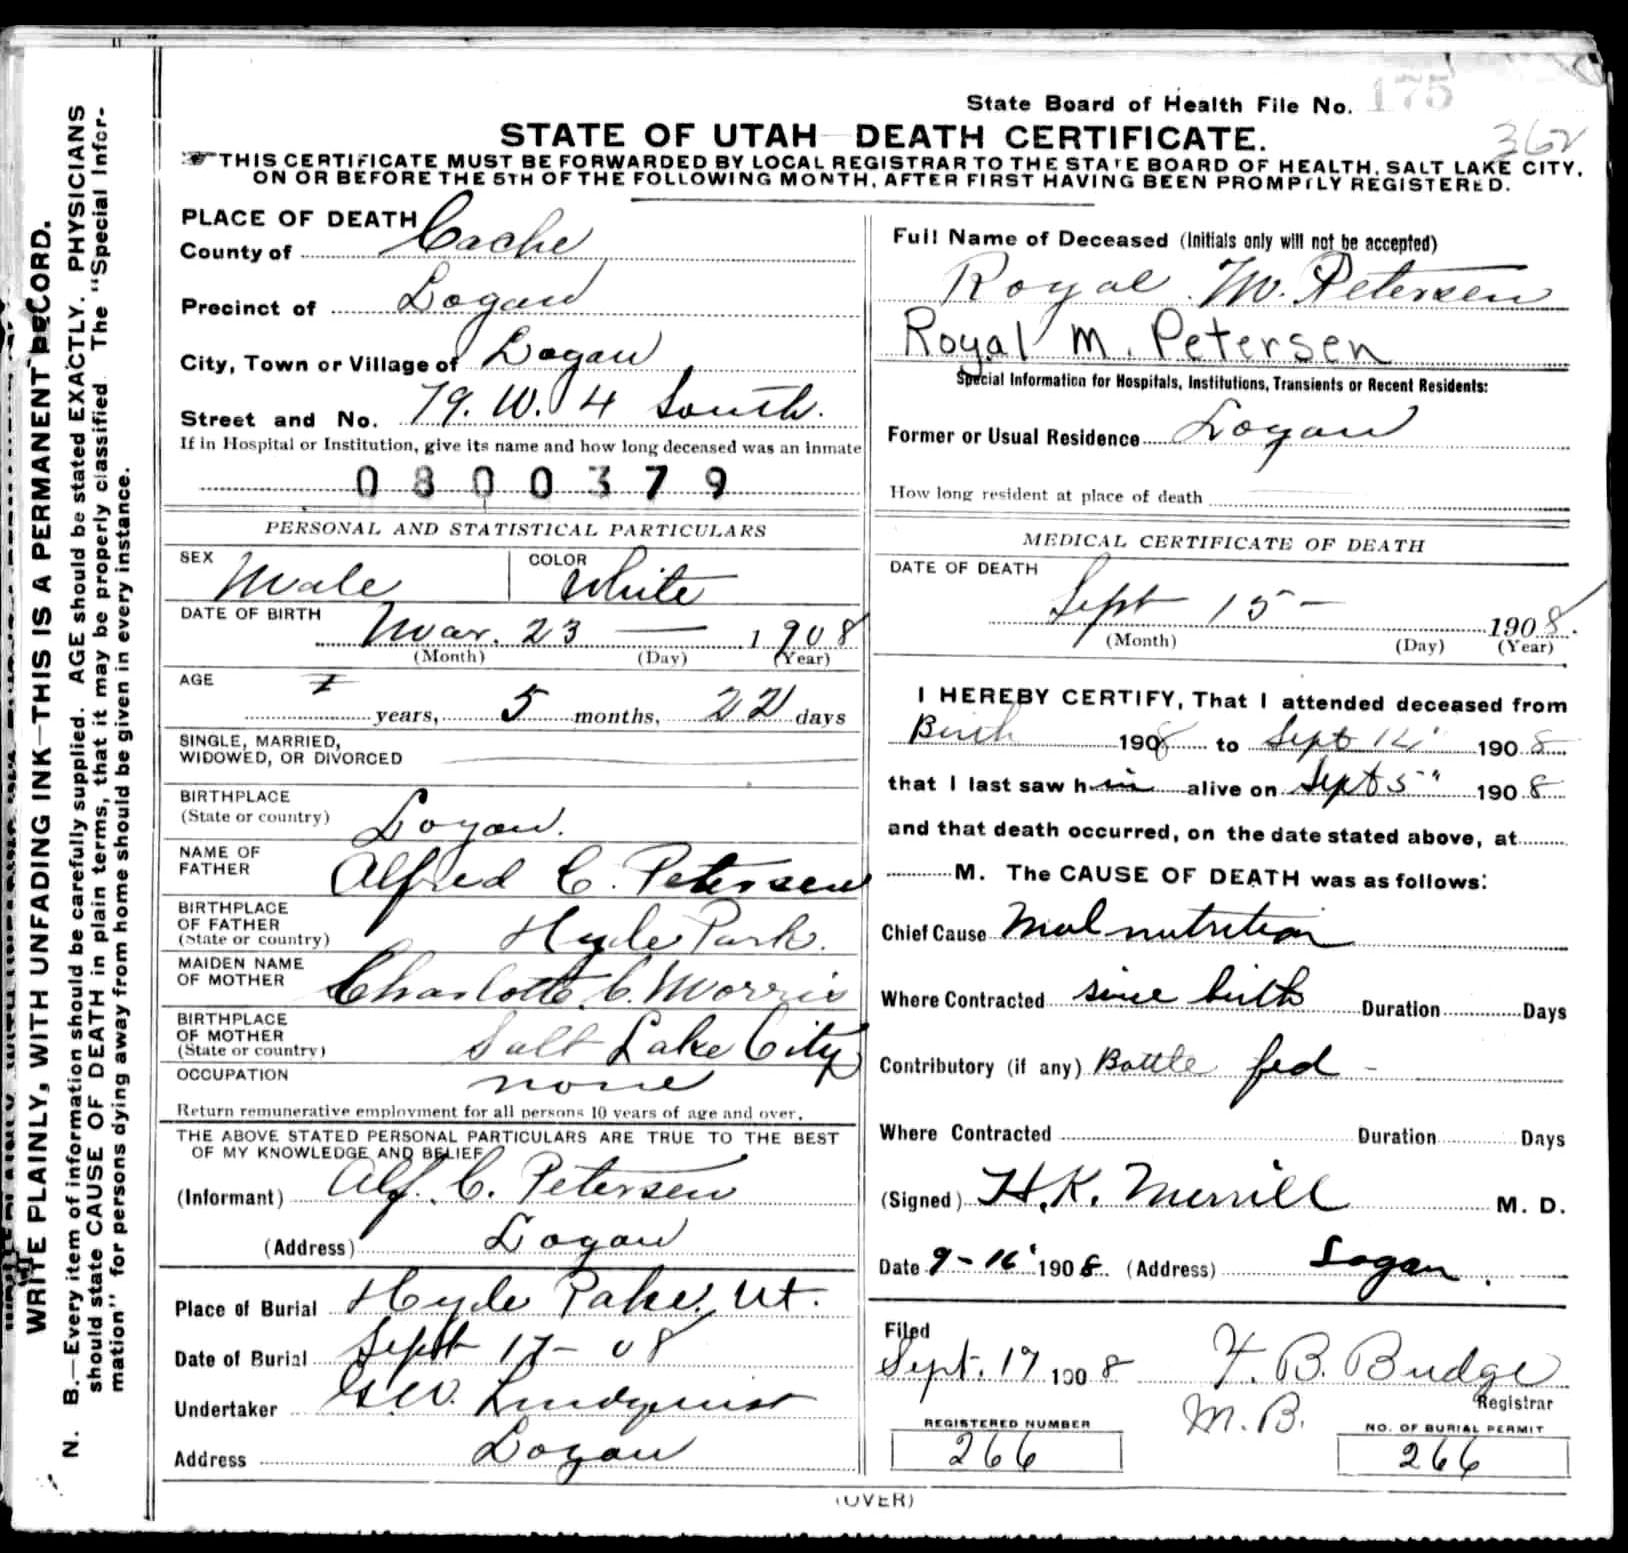 State Board of Health File No. 175
362
STATE OF UTAH DEATH CERTIFICATE.
THIS CERTIFICATE MUST BE FORWARDED BY LOCAL REGISTRAR TO THE STATE BOARD OF HEALTH, SALT LAKE CITY,
ON OR BEFORE THE 5TH OF THE FOLLOWING MONTH, AFTER FIRST HAVING BEEN PROMPTLY REGISTERED.
WRITE PLAINLY, WITH UNFADING INK—THIS IS A PERMANENT RECORD.
N. B.—Every item of information should be carefully supplied. AGE should be stated EXACTLY. PHYSICIANS
should state CAUSE OF DEATH in plain terms, that it may be properly classified. The "Special Infor-
mation" for persons dying away from home should be given in every instance.
PLACE OF DEATH
County of Cache
Precinct of Logan
City, Town or Village of Logan
Street and No. 79. W. 4 South.
If in Hospital or Institution, give its name and how long deceased was an inmate
0800379
PERSONAL AND STATISTICAL PARTICULARS
SEX Male COLOR White
DATE OF BIRTH
Mar. 23 — 1908
(Month) (Day) (Year)
AGE
years, 5 months, 22 days
SINGLE, MARRIED,
WIDOWED, OR DIVORCED
BIRTHPLACE
(State or country) Logan.
NAME OF
FATHER Alfred C. Petersen
BIRTHPLACE
OF FATHER
(State or country) Hyde Park.
MAIDEN NAME
OF MOTHER Charlotte C. Morris
BIRTHPLACE
OF MOTHER
(State or country) Salt Lake City
OCCUPATION none
Return remunerative employment for all persons 10 years of age and over.
THE ABOVE STATED PERSONAL PARTICULARS ARE TRUE TO THE BEST
OF MY KNOWLEDGE AND BELIEF
(Informant) Alf. C. Petersen
(Address) Logan
Place of Burial Hyde Park, Ut.
Date of Burial Sept 17 - 08
Undertaker G.W. Lindquist
Address Logan
Full Name of Deceased (Initials only will not be accepted)
Royal M. Petersen
Royal M. Petersen
Special Information for Hospitals, Institutions, Transients or Recent Residents:
Former or Usual Residence Logan
How long resident at place of death
MEDICAL CERTIFICATE OF DEATH
DATE OF DEATH
Sept 15 — 1908.
(Month) (Day) (Year)
I HEREBY CERTIFY, That I attended deceased from
Birth 1908 to Sept 1908
that I last saw him alive on Sept 5" 1908
and that death occurred, on the date stated above, at
M. The CAUSE OF DEATH was as follows:
Chief Cause Malnutrition
Where Contracted since birth Duration Days
Contributory (if any) Bottle fed -
Where Contracted Duration Days
(Signed) H.K. Merrill M. D.
Date 9-16 1908. (Address) Logan.
Filed
Sept. 17 1908 F. B. Budge
Registrar
M.B.
REGISTERED NUMBER
266
NO. OF BURIAL PERMIT
266
(OVER)